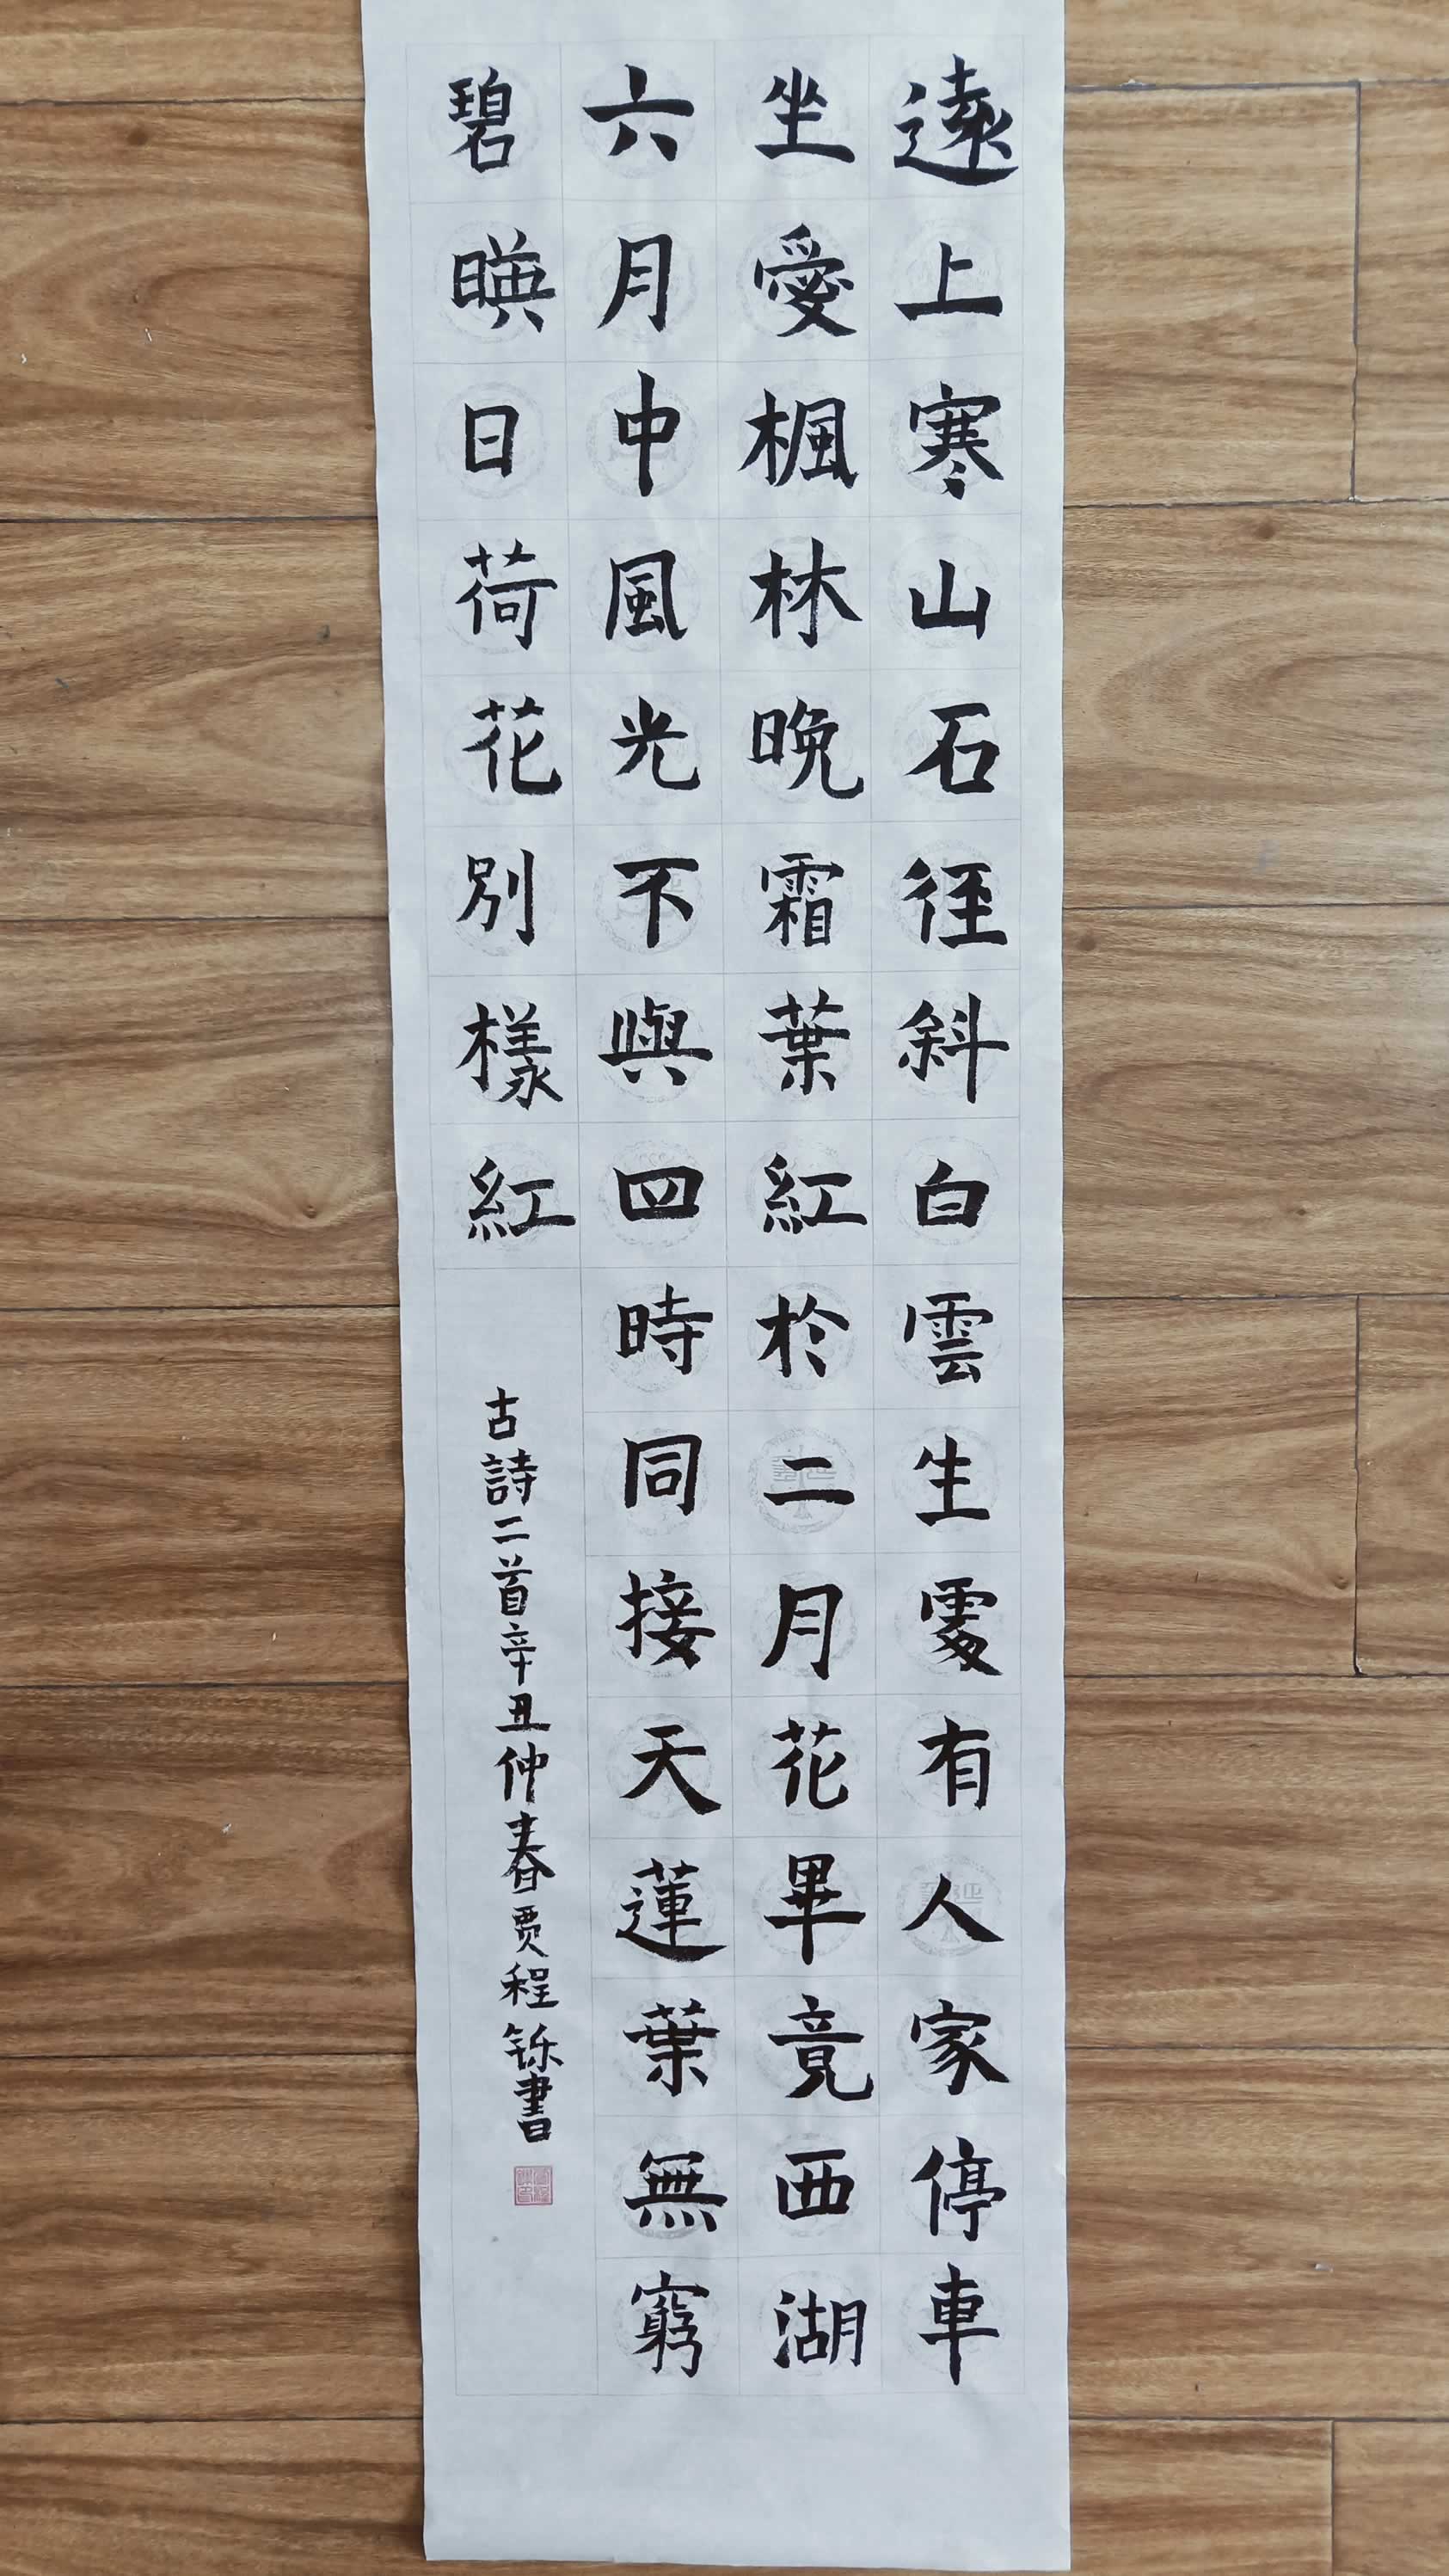 遠上寒山石徑斜白雲生處有人家停車
坐愛楓林晚霜葉紅於二月花畢竟西湖
六月中風光不與四時同接天蓮葉無窮
碧暎日荷花別樣紅
古詩二首辛丑仲春贾程铄書